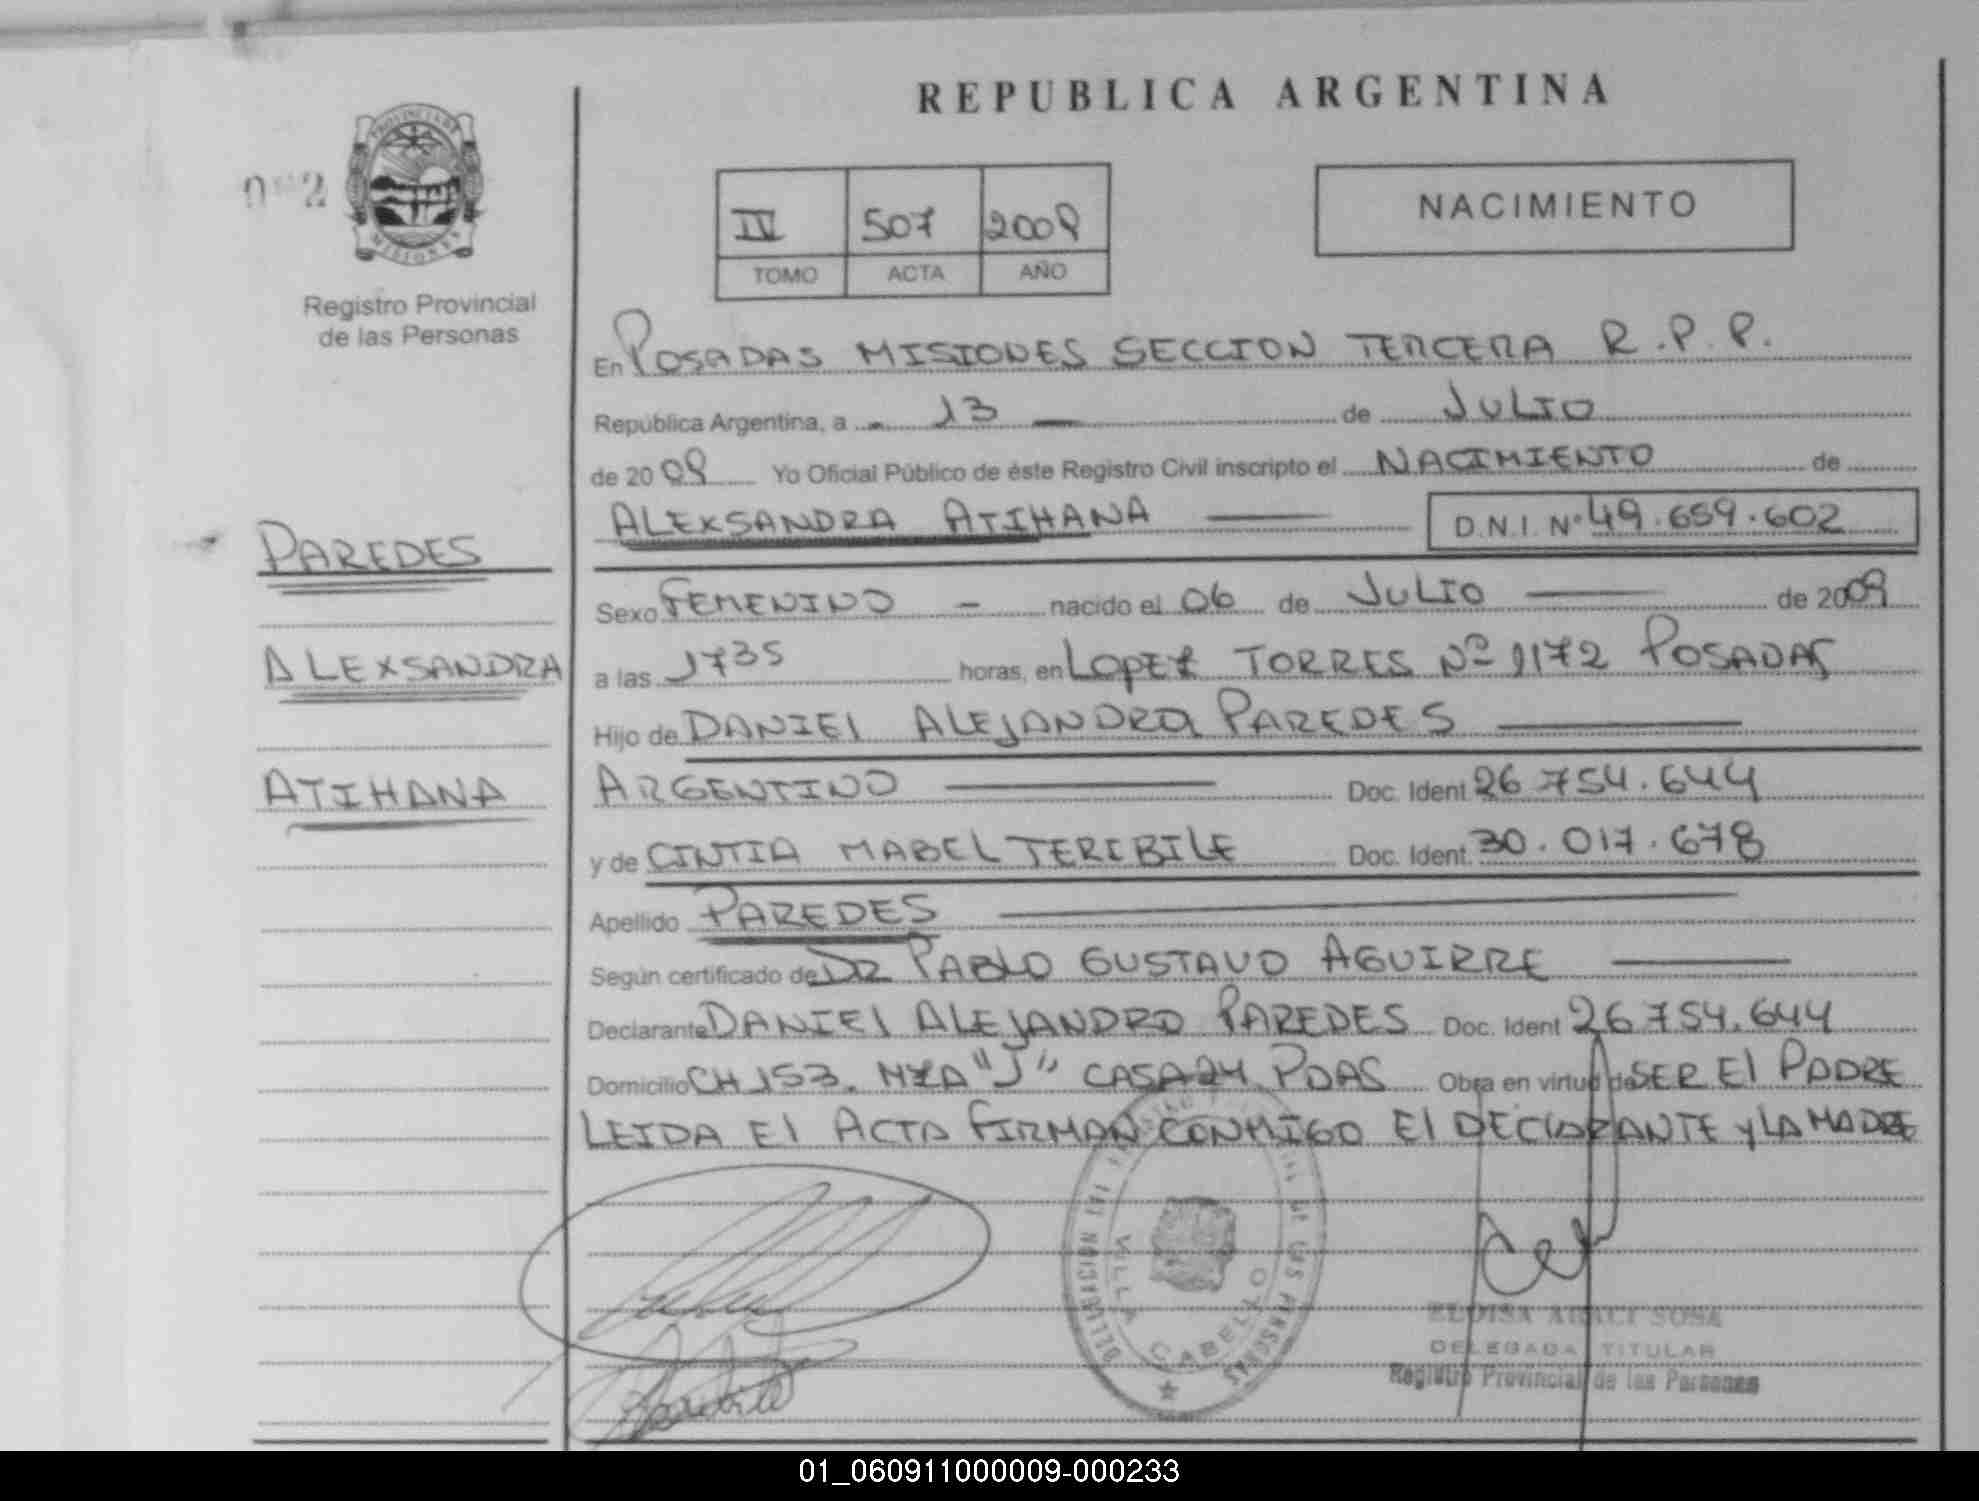 REPUBLICA ARGENTINA
PROVINCIA DE
MISIONES
Registro Provincial
de las Personas
IV 507 2009
TOMO ACTA AÑO
NACIMIENTO
En POSADAS MISIONES SECCION TERCERA R.P.P.
República Argentina, a 13 de JULIO
de 2009 Yo Oficial Público de éste Registro Civil inscripto el NACIMIENTO de
ALEXSANDRA ATIHANA D.N.I. Nº 49.659.602
PAREDES
ALEXSANDRA
ATIHANA
Sexo FEMENINO nacido el 06 de JULIO de 2009
a las 1735 horas, en LOPEZ TORRES Nº 1172 POSADAS
Hijo de DANIEL ALEJANDRO PAREDES
ARGENTINO Doc. Ident 26.754.644
y de CINTIA MABEL TERIBILE Doc. Ident. 30.017.678
Apellido PAREDES
Según certificado de DR PABLO GUSTAVO AGUIRRE
Declarante DANIEL ALEJANDRO PAREDES Doc. Ident 26.754.644
Domicilio CH 153. MZA "J" CASA 24 PDAS Obra en virtud de SER El PADRE
LEIDA El ACTA FIRMAN CONMIGO El DECLARANTE y LA MADRE
VILLA CABELLO
DE LAS PERSONAS
ELOISA ARACI SOSA
DELEGADA TITULAR
Registro Provincial de las Personas
01_060911000009-000233